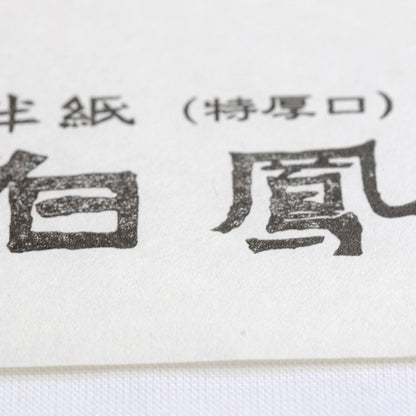 半紙(特厚口)
白鳳